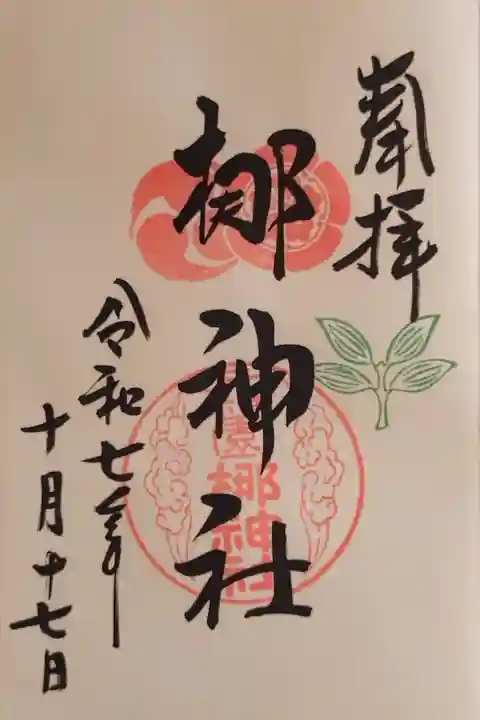 奉拝
梛神社
園梛神社
令和七年
十月十七日